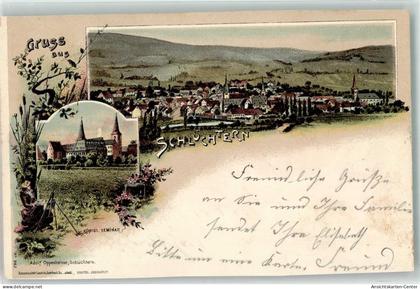 Gruss
aus
SCHLÜCHTERN
KÖNIGL. SEMINAR
Adolf Oppenheimer, Schlüchtern.
Freundliche Grüße
an Sie und Ihre Familie
sendet Ihre Elisabeth
Bitte nur eine Karte. Freund
Ansichtskarten-Center